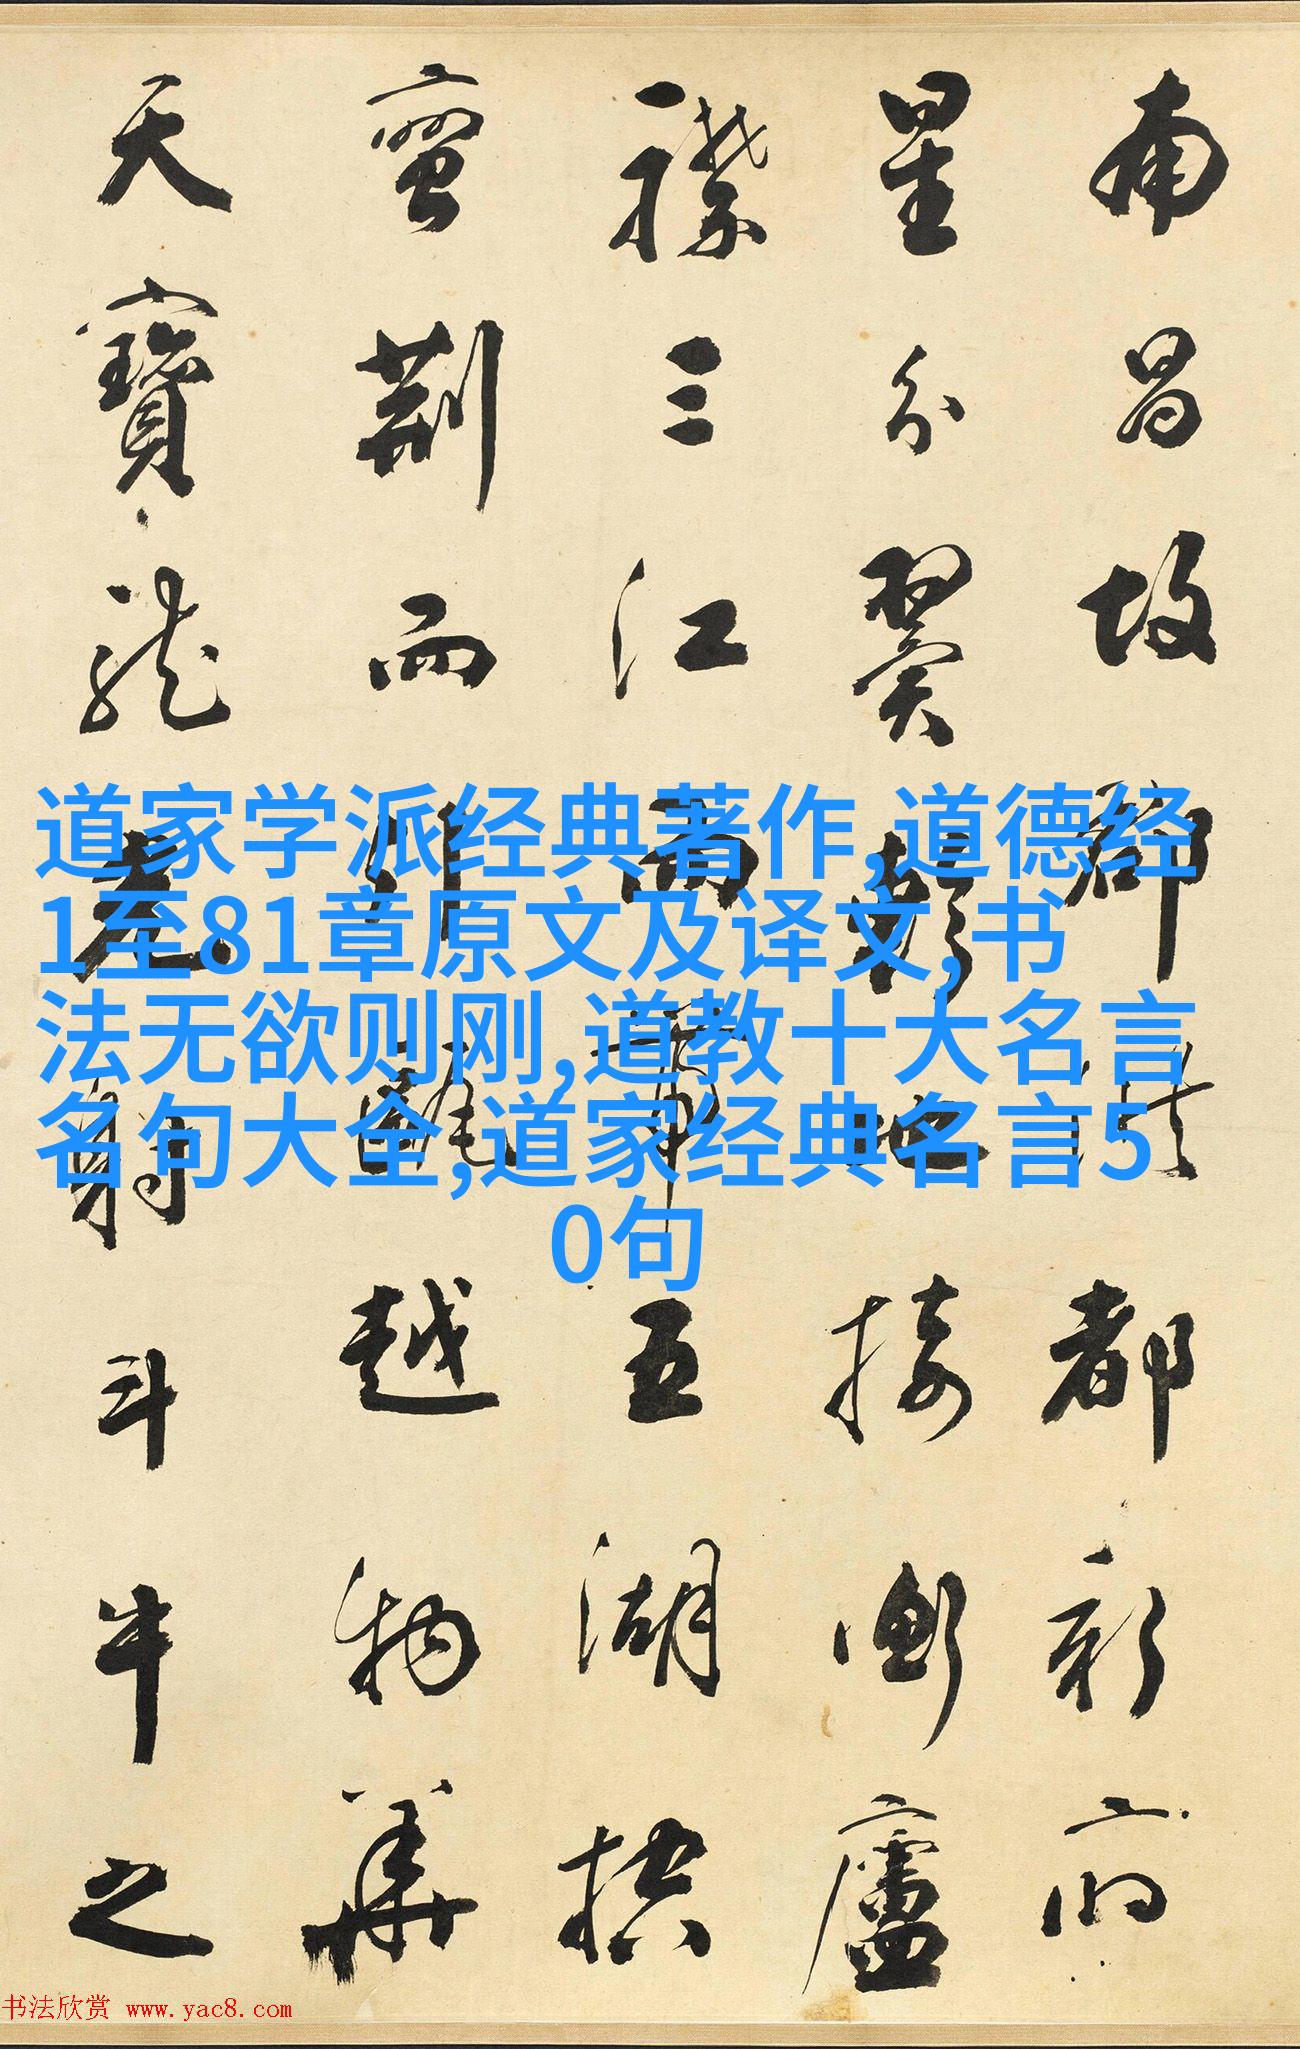 南昌故郡洪都新府
星分翼軫地接衡廬
襟三江而帶五湖控
蠻荊而引甌越物華
天寶龍光射斗牛之
道家学派经典著作,道德经
1至81章原文及译文,书
法无欲则刚,道教十大名言
名句大全,道家经典名言5
0句
书法欣赏 www.yac8.com